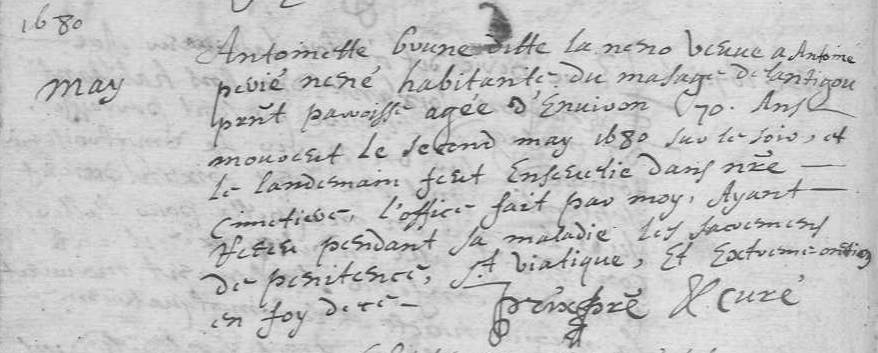 1680
Antoinette brune ditte la nero veuve a Antoine
may perié neré habitante du masage de
prñt parroisse agée d'Environ 70. Ans
mourcut le second may 1680 sur le soir, et
le landemain feut Ensevelie dans nr̃e
Cimetiere, l'office fait par moy, Ayant
receu pendant sa maladie les sacremens
de penitence, st viatique, Et Extreme onction
en foy de ce prẽ & curé